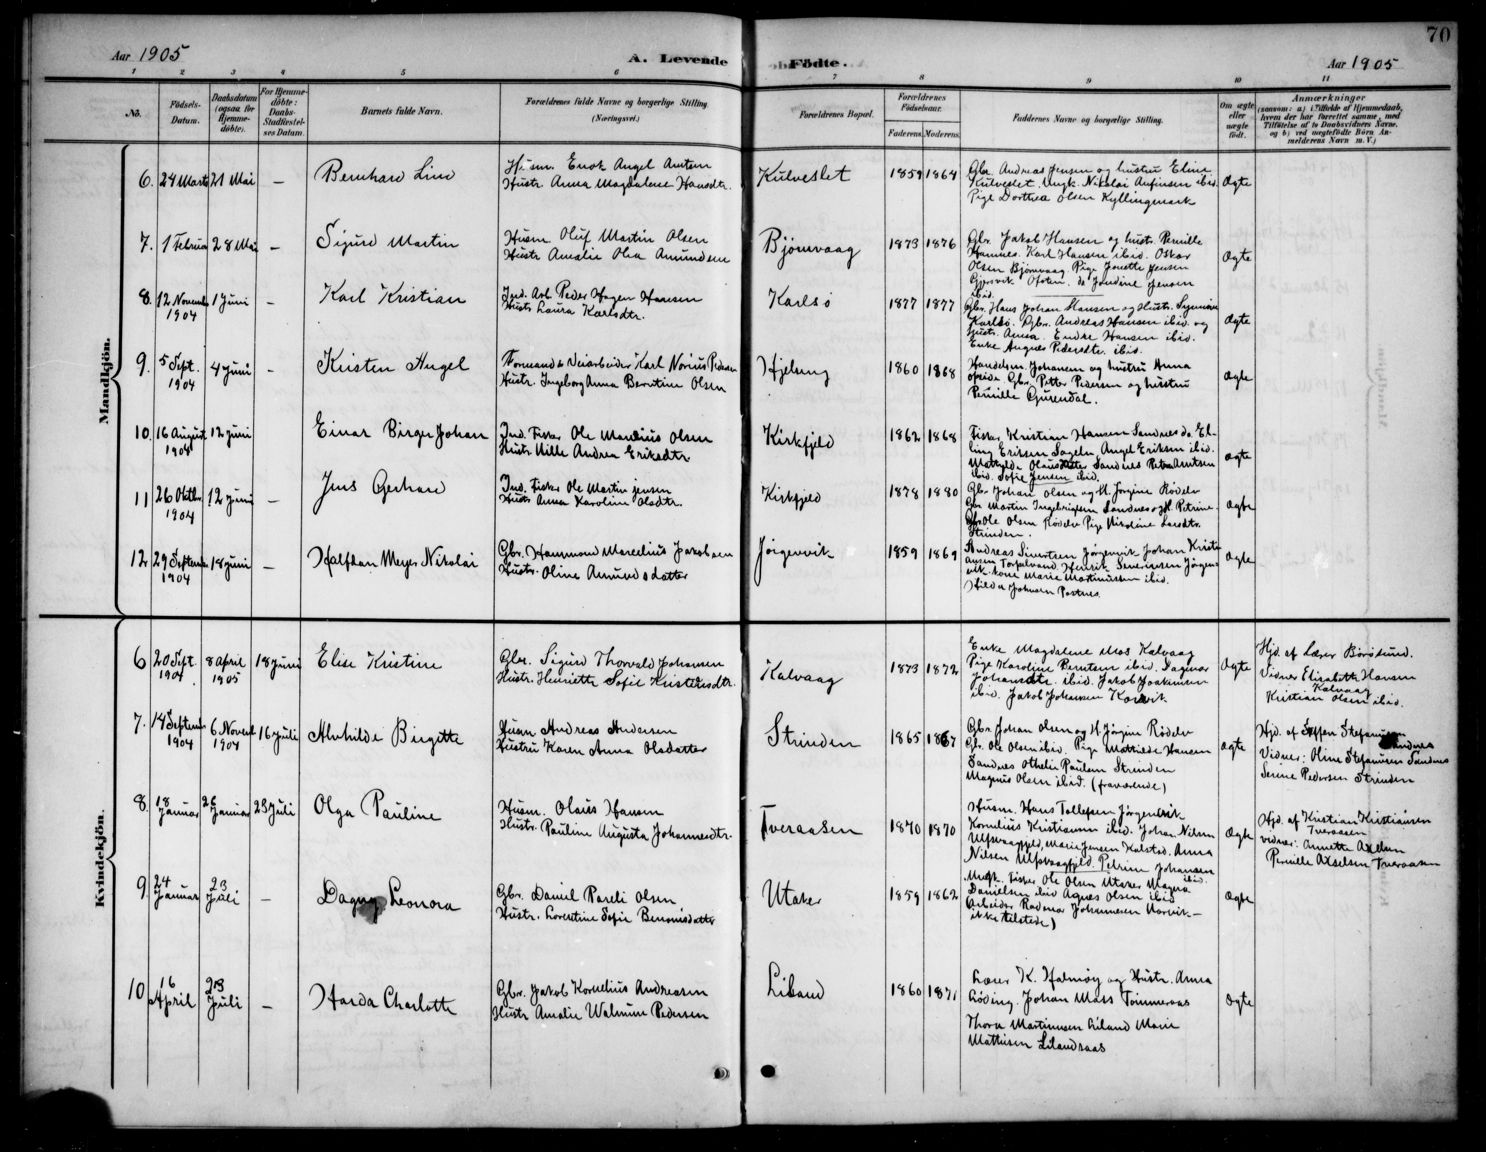 70
Aar 1905
A. Levende Födte.
Aar 1905
1 2 3 4 5 6 7 8 9 10 11
No.
Födsels-
Datum.
Daabsdatum
(ogsaa for
Hjemme-
döbte).
For Hjemme-
döbte:
Daabs-
Stadfæstel-
ses Datum.
Barnets fulde Navn.
Forældrenes fulde Navne og borgerlige Stilling
(Næringsvei.)
Forældrenes Bopæl.
Forældrenes
Födselsaar.
Faderens. Moderens.
Faddernes Navne og borgerlige Stilling.
Om ægte
eller
uægte
födt.
Anmærkninger
(saasom: a) i Tilfælde af Hjemmedaab,
hvem der har forrettet samme, med
Tilföielse af to Daabsvidners Navne,
og b) ved uægtefödte Börn An-
melderens Navn m. V.)
Mandkjön.
6. 24 Marts 21 Mai — Bernhard Lind
Husm. Enok Angel Amtsen
Hustr. Anna Magdalene Hansdtr.
Kulveslet 1859 1864
Gbr Andreas Jensen og hustru Eline
Kulveslet. Ungk. Nikolai Anfinsen ibid.
Pige Dorthea Olsen Kyllingmark
Ægte
7. 1 Februar 28 Mai — Sigurd Martin
Husm. Oluf Martin Olsen
Hustr Amalie Olea Amundsen
Bjørnvaag 1873 1876
Gbr. Jakob Hansen og hustr. Pernille
Hamnes. Karl Hansen ibid. Oskar
Olsen Bjørnvaag Pige Jonette Jensen
Gjersvik Ofoten. do Jondine Jensen
ibid.
Ægte
8. 12 Novemb 1904 1 Juni — Karl Kristian
Ind. Arb. Peder Hagen Hansen
Hustr Laura Karlsdtr.
Karlsø 1877 1877
Gbr. Hans Johan Hansen og Hustr.
Karlsø. Gbr. Andreas Hansen ibid. og
Hustr. Anna. Endre Hansen ibid.
Enke Angnes Pedersdtr. ibid.
Ægte
9. 5 Sept. 1904 4 Juni — Kristen Angel
Formand & Veiarbeider Karl Norius Pedersen
Hustr. Ingeborg Anna Berntine Olsen
Hjellung 1860 1868
Handelsm. Johansen og hustru Anna
Gbr. Petter Pedersen og hustru
Pernille Gurendal.
Ægte
10. 16 August 1904 12 Juni Einar Birger Johan
Ind. Fisker Ole Mandius Olsen
Hustr Nille Andrea Eriksdtr
Kirkfjeld 1862 1868
Fisker Kristian Hansen Sandnes do. El-
ling Eriksen Angel Eriksen ibid.
Mathilde Olausdtr Sandnes Petra Amtsen
ibid. Sofie Jensen ibid.
Ægte
11 26 Oktbr. 1904 12 Juni — Jens Gerhard
Ind. Fisker Ole Martin Jensen
Hustr Anna Karoline Olsdtr.
Kirkfjeld 1878 1880
Gbr Johan Olsen og H. Jørgine Rødelv
Gbr Martin Ingebrigtsen Sandnes og H. Petrine.
Gbr Ole Olsen Rødelv Pige Nikoline Larsdtr.
Strinden.
Ægte
12. 29 Septemb 1904 18 Juni — Halfdan Meyer Nikolai
Gbr. Hammond Marcelius Jakobsen
Hustr. Oline Amundsdatter
Jørgenvik 1859 1869
Andreas Sivertsen Jørgenvik Johan Kristi-
ansen Henrik Severinsen Jørgen-
vik. kone Marie Martinussen ibid.
Hilda Johnsen Postnes.
Ægte
Kvindekjön.
6 20 Sept. 1904 8 April 1905 18 Juni Elise Kristine
Gbr. Sigurd Thorvald Johansen
Hustr. Henriette Sofie Kristensdtr.
Kalvaag 1873 1872
Enke Magdalene Moe Kalvaag
Pige Karoline Berntsen ibid. Dagmar
Johansdtr. ibid. Jakob Joakimsen
ibid. Jakob Johansen Korsvik
Ægte
Hjd. af Lærer Børdlund.
Vidner Elisabeth Hansen
Kalvaag
Kristian Olsen ibid.
7. 14 Septemb 1904 6 Novemb 1904 16 Juli Alvhilde Birgitte
Husm Andreas Andersen
Hustru Karen Anna Olsdatter
Strinden 1865 1867
Gbr. Johan Olsen og H. Jørgine Rødelv
Gbr. Ole Olsen ibid. Pige Mathilde Hansen
Sandnes Othelie Paulsen Strinden
Magnus Olsen ibid. (fraværende)
ægte
Hjd. af Steffen Stefanussen
Sandnes
Vidner: Oline Stefanussen Sandnes
Serine Pedersen Strinden
8. 18 Januar 26 Januar 23 Juli Olga Pauline
Husm. Olaus Hansen
Hustr. Pauline Augusta Johannesdtr.
Tveraasen 1870 1870
Husm. Hans Tollefsen Jørgenvik
Kornelius Kristiansen ibid. Johan Nilsen
Ulfsvaagfjeld, Marie Jensen Kalstad. Anna
Nilsen Ulfsvaagfjeld Petrine Johansen
ibid.
Ægte
Hjd. af Kristian Kristiansen
Tveraasen
vidner: Annette Axelsen
Pernille Axelsen Tveraasen
9. 24 Januar 23 Juli — Dagny Leonora
Gbr. Daniel Pareli Olsen
Hustr. Lorentine Sofie Benonisdatter
Utaker 1859 1862
Ungk. Fisker Ole Olsen Utaker Magna
Danielsen ibid Agnes Olsen ibid
(Arbeider Johannesen Narvik—
ikke tilstede)
Ægte
10 16 April 23 Juli — Harda Charlotte
Gbr. Jakob Kornelius Andreasen
Hustr Amalie Walmine Pedersen
Liland 1860 1871
Lærer K. Halmøy og Hustr. Anna
Løding. Johan Mass Tommeraas
Thora Martinusen Liland Marie
Mathisen Lilandsaas
Ægte